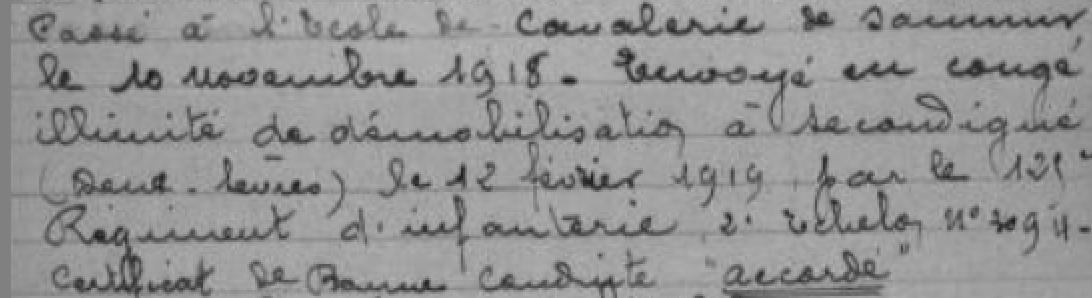 Passé à l'Ecole de Cavalerie de Saumur
le 10 novembre 1918. Envoyé en congé
illimité de démobilisation à Secondigné
(Deux-Sèvres) le 12 février 1919, par le 125e
Régiment d'infanterie, 2e Echelon, n°
Certificat de Bonne Conduite "accordé"